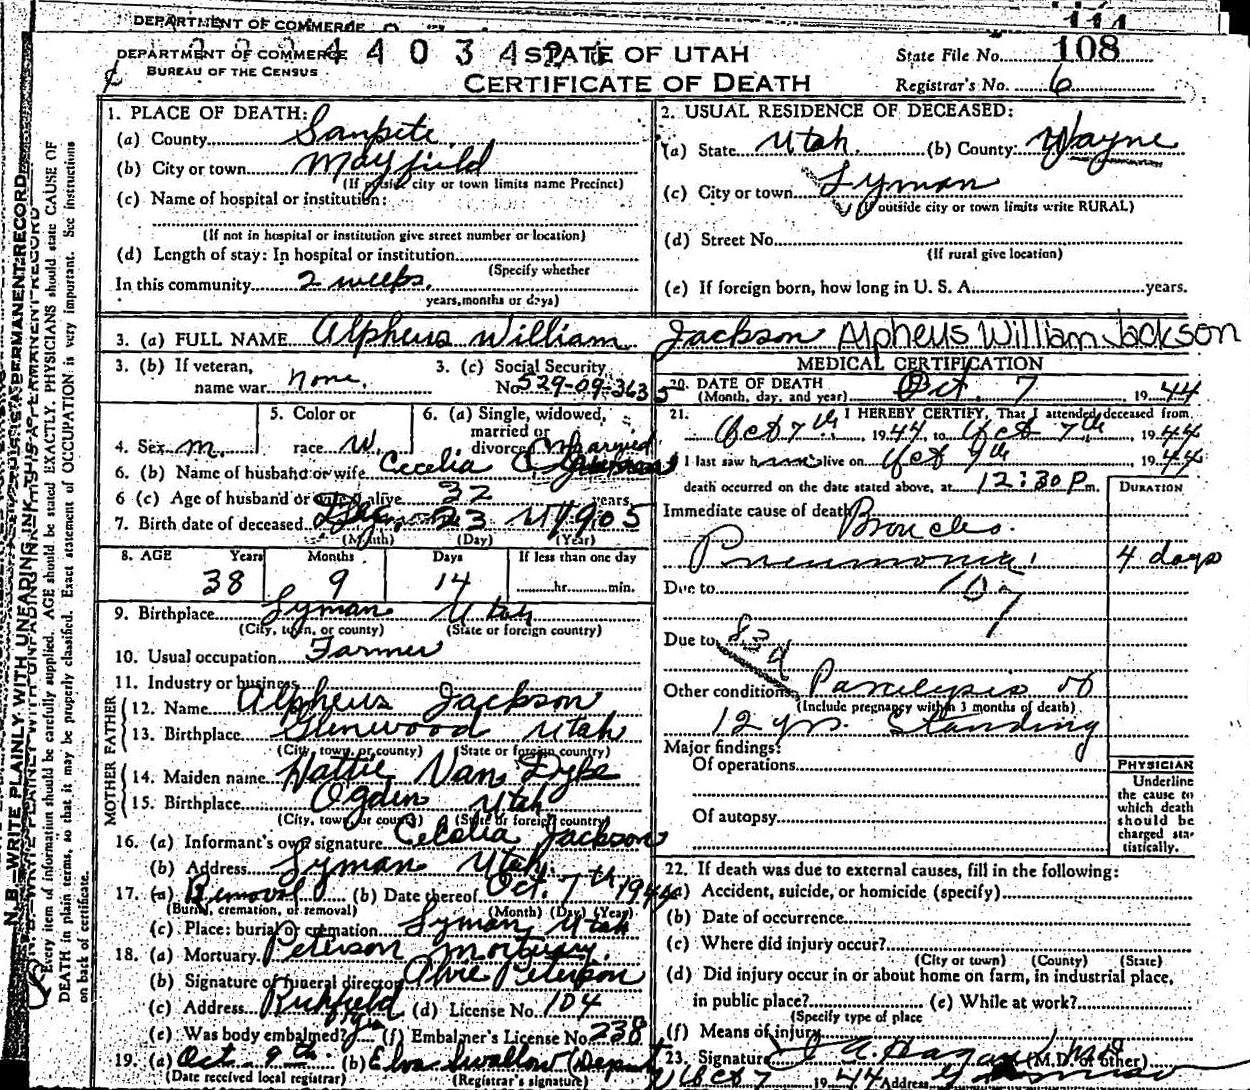 DEPARTMENT OF COMMERCE
DEPARTMENT OF COMMERCE
BUREAU OF THE CENSUS
STATE OF UTAH
CERTIFICATE OF DEATH
State File No. 108
Registrar's No. 6
1. PLACE OF DEATH:
(a) County Sanpete
(b) City or town Mayfield
(If outside city or town limits name Precinct)
(c) Name of hospital or institution:
(If not in hospital or institution give street number or location)
(d) Length of stay: In hospital or institution
(Specify whether
In this community 2 weeks.
years, months or days)
2. USUAL RESIDENCE OF DECEASED:
(a) State Utah. (b) County Wayne
(c) City or town Lyman
(If outside city or town limits write RURAL)
(d) Street No.
(If rural give location)
(e) If foreign born, how long in U. S. A. years.
3. (a) FULL NAME Alpheus William Jackson Alpheus William Jackson
3. (b) If veteran, name war none.
3. (c) Social Security No. 529-09-3635
4. Sex m.
5. Color or race W.
6. (a) Single, widowed, married or divorced married
6. (b) Name of husband or wife Cecelia
6 (c) Age of husband or wife if alive 32 years
7. Birth date of deceased Dec. 23 1905
(Month) (Day) (Year)
8. AGE Years Months Days If less than one day
38 9 14 hr. min.
9. Birthplace Lyman Utah
(City, town, or county) (State or foreign country)
10. Usual occupation Farmer
11. Industry or business
FATHER
12. Name Alpheus Jackson
13. Birthplace Glenwood Utah
(City, town, or county) (State or foreign country)
MOTHER
14. Maiden name Hattie Van Dyke
15. Birthplace Ogden Utah
(City, town, or county) (State or foreign country)
16. (a) Informant's own signature Cecelia Jackson
(b) Address Lyman Utah.
17. (a) Removal (b) Date thereof Oct. 7th 1944
(Burial, cremation, or removal) (Month) (Day) (Year)
(c) Place: burial or cremation Lyman, Utah
18. (a) Mortuary Peterson Mortuary.
(b) Signature of funeral director Peterson
(c) Address Richfield (d) License No. 104
(e) Was body embalmed? Yes (f) Embalmer's License No. 238
19. (a) Oct. 9th (b) Elva Swallow (Deputy
(Date received local registrar) (Registrar's signature)
MEDICAL CERTIFICATION
20. DATE OF DEATH Oct. 7 1944
(Month, day, and year)
21. I HEREBY CERTIFY, That I attended deceased from
Oct 7th, 1944, to Oct 7th 1944
I last saw him alive on Oct 7th, 1944
death occurred on the date stated above, at 12:30 P.m.
DURATION
Immediate cause of death Broncho.
Pneumonia 4 days
Due to 107
Due to 83d
Other conditions Paralysis of
(Include pregnancy within 3 months of death)
12 yrs. Standing
Major findings:
Of operations
Of autopsy
PHYSICIAN
Underline
the cause to
which death
should be
charged sta-
tistically.
22. If death was due to external causes, fill in the following:
(a) Accident, suicide, or homicide (specify)
(b) Date of occurrence
(c) Where did injury occur?
(City or town) (County) (State)
(d) Did injury occur in or about home on farm, in industrial place,
in public place? (e) While at work?
(Specify type of place
(f) Means of injury
23. Signature (M.D. or other)
Oct 7 1944 Address
N.B.—WRITE PLAINLY, WITH UNFADING INK—THIS IS A PERMANENT RECORD
Every item of information should be carefully supplied. AGE should be stated EXACTLY. PHYSICIANS should state CAUSE OF
DEATH in plain terms, so that it may be properly classified. Exact statement of OCCUPATION is very important. See Instructions
on back of certificate.